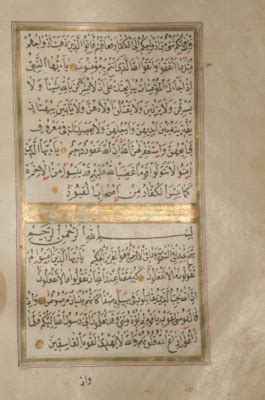 شئ من ازواجكم الى الكفار فعاقبتم فاتوا الذين ذهبت ازواجهم
مثل ما انفقوا واتقوا الله الذى انتم به مؤمنون يا ايها النبى
اذا جاءك المؤمنات يبايعنك على ان لا يشركن بالله شيئا ولا
يسرقن ولا يزنين ولا يقتلن اولادهن ولا ياتين ببهتان
يفترينه بين ايديهن وارجلهن ولا يعصينك فى معروف
فبايعهن واستغفر لهن الله ان الله غفور رحيم يا ايها الذين
امنوا لا تتولوا قوما غضب الله عليهم قد يئسوا من الاخرة
كما يئس الكفار من اصحاب القبور
بسم الله الرحمن الرحيم
سبح لله ما فى السموات وما فى الارض وهو العزيز الحكيم يا ايها الذين امنوا لم
تقولون ما لا تفعلون كبر مقتا عند الله ان تقولوا ما لا تفعلون
ان الله يحب الذين يقاتلون فى سبيله صفا كانهم بنيان مرصوص واذ
قال موسى لقومه يا قوم لم تؤذوننى وقد تعلمون انى رسول الله اليكم فلما
زاغوا ازاغ الله قلوبهم والله لا يهدى القوم الفاسقين
واذ